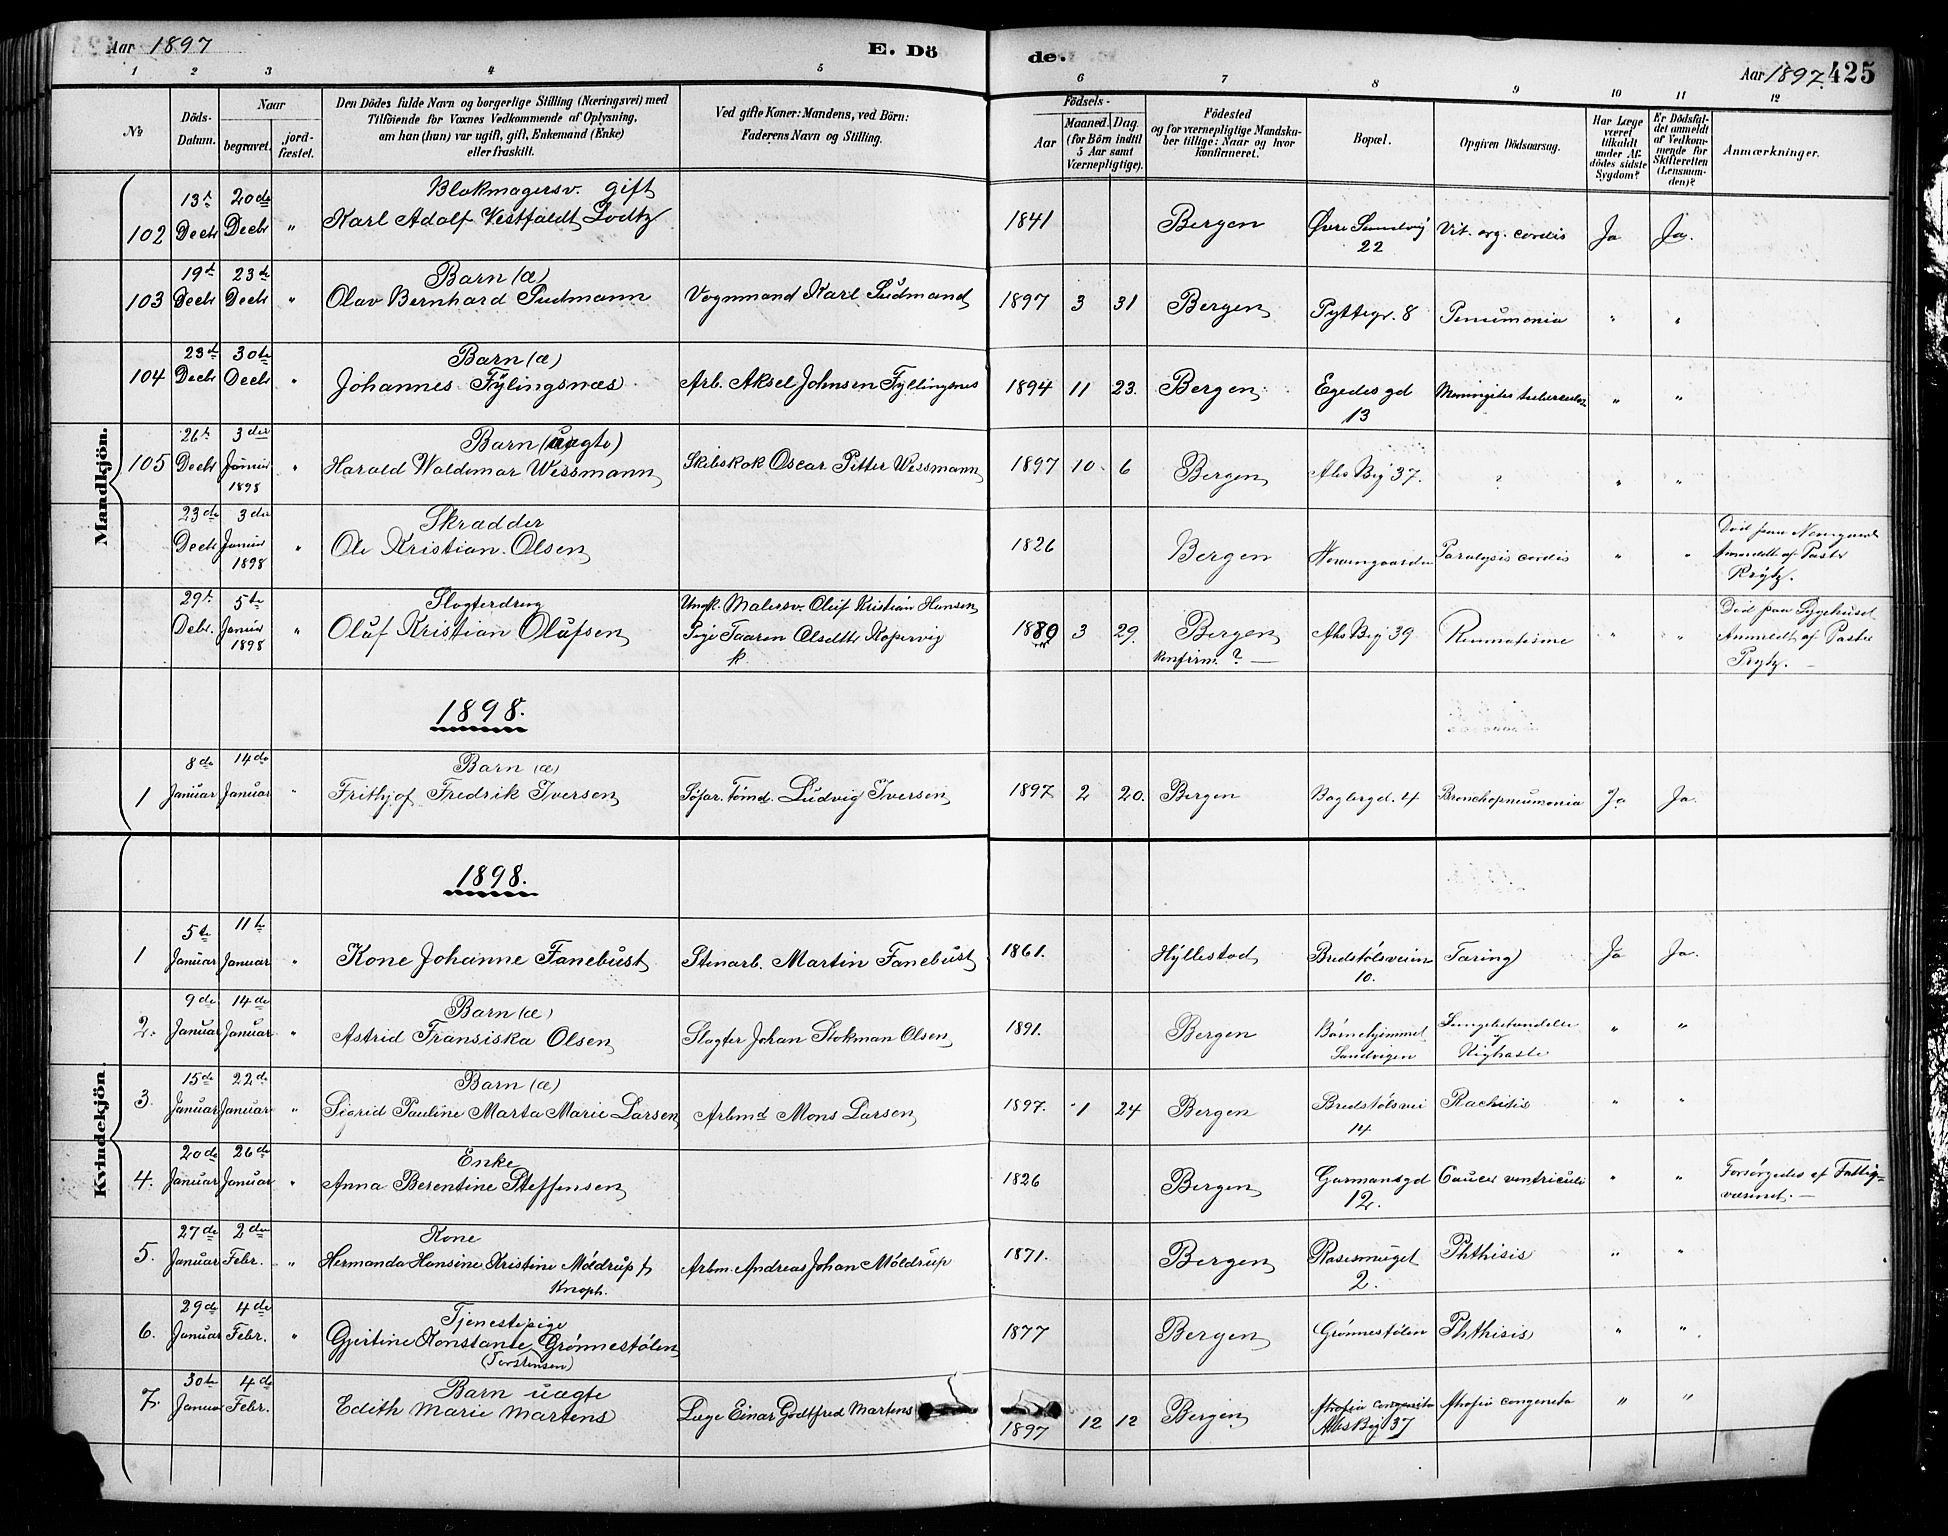 Aar 1897 E. Döde. Aar 1897. 425
1 2 3 4 5 6 7 8 9 10 11 12
№
Döds-Datum.
Naar
begravet. jordfæstet.
Den Dödes fulde Navn og borgerlige Stilling (Næringsvei) med
Tilföiende for Voxnes Vedkommende af Oplysning,
om han (hun) var ugift, gift, Enkemand (Enke)
eller fraskilt.
Ved gifte Koner: Mandens, ved Börn:
Faderens Navn og Stilling.
Födsels-
Aar Maaned. Dag.
(for Börn indtil
5 Aar samt
Værnepligtige).
Födested
og for værnepligtige Mandskaber tillige: Naar og hvor
konfirmeret.
Bopæl.
Opgiven Dödsaarsag.
Har Læge
været
tilkaldt
under Afdödes sidste
Sygdom?
Er Dödsfaldet anmeldt
af Vedkommende for
Skifteretten
(Lensmanden)?
Anmærkninger.
Mandkjön.
102 13de Decbr 20de Decbr " Blokmagersv. gift
Karl Adolf Vestfaldt Lodtz 1841 Bergen Øvre Sandvig 22 Vit. org. cordis Ja Ja.
103 19de Decbr 23de Decbr " Barn (æ)
Olav Bernhard Sudmann Vognmand Karl Sudmand 1897 3 31 Bergen Pyttegr. 8 Pneumonia " "
104 23de Decbr 30te Decbr " Barn (æ)
Johannes Fylingsnæs Arb. Aksel Johnsen Fyllingsnes 1894 11 23. Bergen. Egedesgd 13 Meningitis tuberculos " "
105 26de Decbr 3die Januar 1898 " Barn (uægte)
Harald Waldemar Wessmann Skibskok Oscar Pitter Wessmann 1897 10 6 Bergen Ahs Bg 37. ? " "
23de Decbr 3die Januar 1898 " Skrædder
Ole Kristian Olsen 1826 Bergen Neumgaarden Paralysis cordis " " Död paa Neumgaard
Anmeldt af Pastor
29de Debr. 5te Januar 1898 " Slagterdreng
Oluf Kristian Olufsen Ungk. Malersv. Oluf Kristian Hansen
Pige Taaren Olsdttr Kopervig 1880 3 29. Bergen konfirm. ? — Ahs Bg 39 Reumatisme " " Död paa Sygehuset
Anmeldt af Pastor
1898.
1 8de Januar 14de Januar " Barn (æ)
Frithjof Fredrik Iversen Söfar. Tömd. Ludvig Iversen 1897 2 20. Bergen Baglergd. 4 Bronchopneumonia Ja Ja.
Kvindekjön.
1898.
1 5te Januar 11te Januar " Kone Johanne Fanebust Stenarb. Martin Fanebust 1861. Hyllestad Bredstølsveien 10. Tæring Ja Ja.
2. 9de Januar 14de Januar " Barn (æ)
Astrid Fransiska Olsen Slagter Johan Stokman Olsen 1891. Bergen Børnehjemmet Sandvigen Lungebetændelse og Kighoste " "
3. 15de Januar 22de Januar " Barn (æ)
Sigrid Pauline Marta Marie Larsen Arbmd Mons Larsen 1897. 1 24 Bergen Bredstølsvei 14 Rachitis " "
4. 20de Januar 26de Januar " Enke
Anna Berentine Steffensen 1826 Bergen Garmansgd 12. Cancer ventriculi " " Forsørgedes af Fattigvæsenet. —
5. 27de Januar 2den Febr. " Kone
Hermanda Hansine Kristine Møldrup f. Knoph. Arbm. Andreas Johan Møldrup 1871. Bergen Rasesmuget 2. Phthisis " "
6. 29de Januar 4de Febr. " Tjenestepige
Gjertine Konstance Grønnestølen
(Torstensen) 1877 Bergen Grønnestølen Phthisis " "
7. 30te Januar 4de Febr. Barn uægte
Edith Marie Martens Læge Einar Godtfred Martens 1897 12 12 Bergen Ahs Bg 37 Atrofia congenita " "